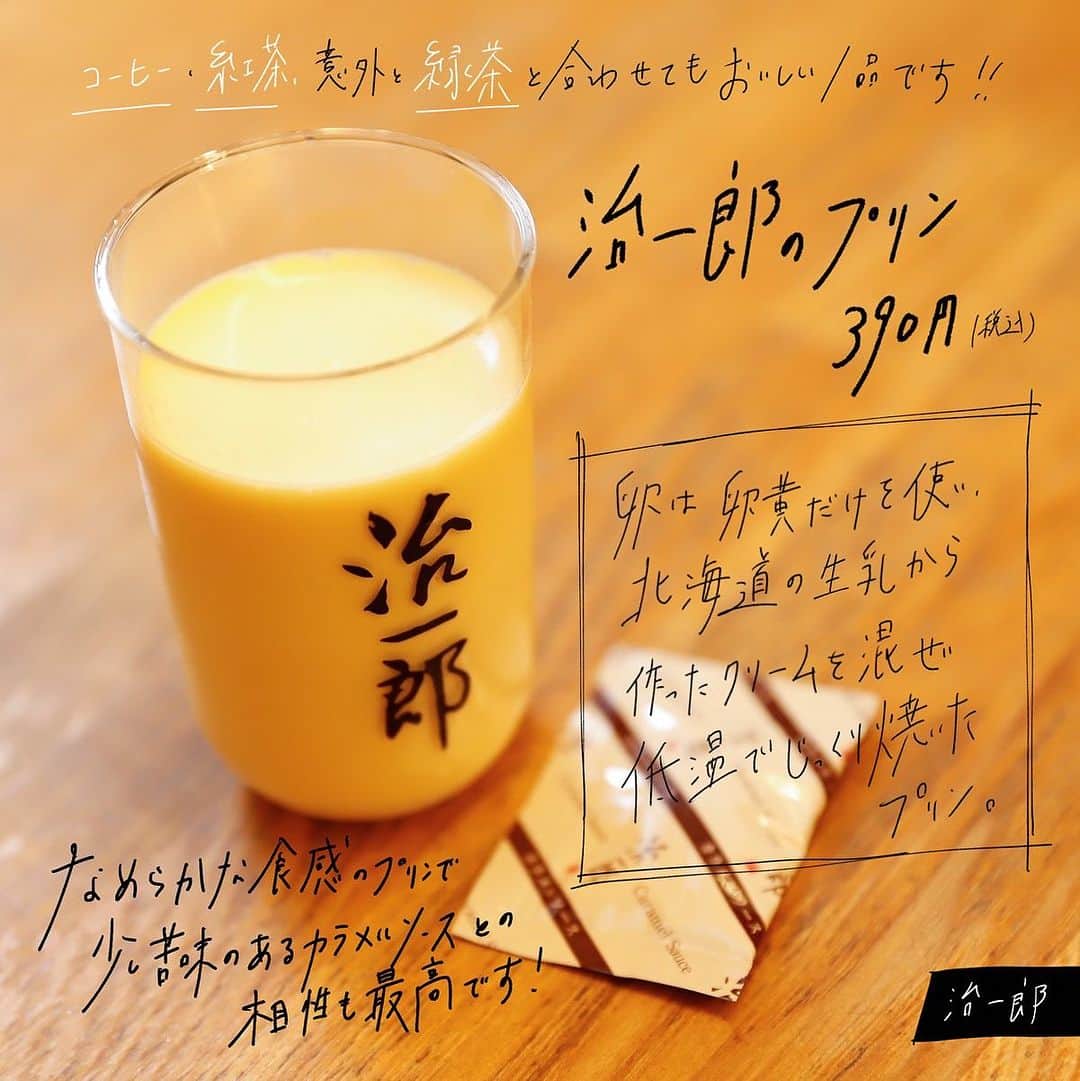 コーヒー、紅茶、意外と緑茶と合わせてもおいしい1品です!!
治一郎のプリン
390円(税込)
治一郎
卵は卵黄だけを使い、
北海道の生乳から
作ったクリームを混ぜ
低温でじっくり焼いた
プリン。
カラメルソース
Caramel Sauce
なめらかな食感のプリンで
少し苦味のあるカラメルソースとの
相性も最高です!
治一郎